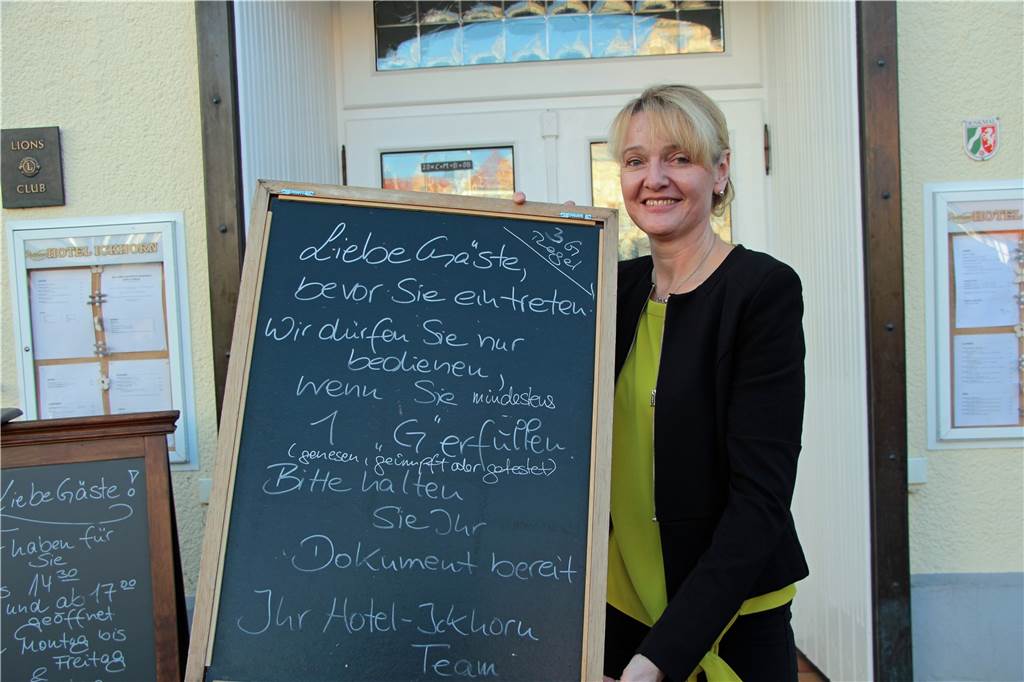 LIONS
CLUB
HOTEL ICKHORN
20*C+M+B+20
DENKMAL
HOTEL
3G
Regel
Liebe Gäste,
bevor Sie eintreten:
Wir dürfen Sie nur
bedienen,
wenn Sie mindestens
1 "G" erfüllen
(genesen, geimpft oder getestet)
Bitte halten
Sie Ihr
Dokument bereit
Ihr Hotel-Ickhorn
Team
Liebe Gäste!
haben für
Sie
14 30
und ab 17 00
geöffnet
Montag bis
Freitag